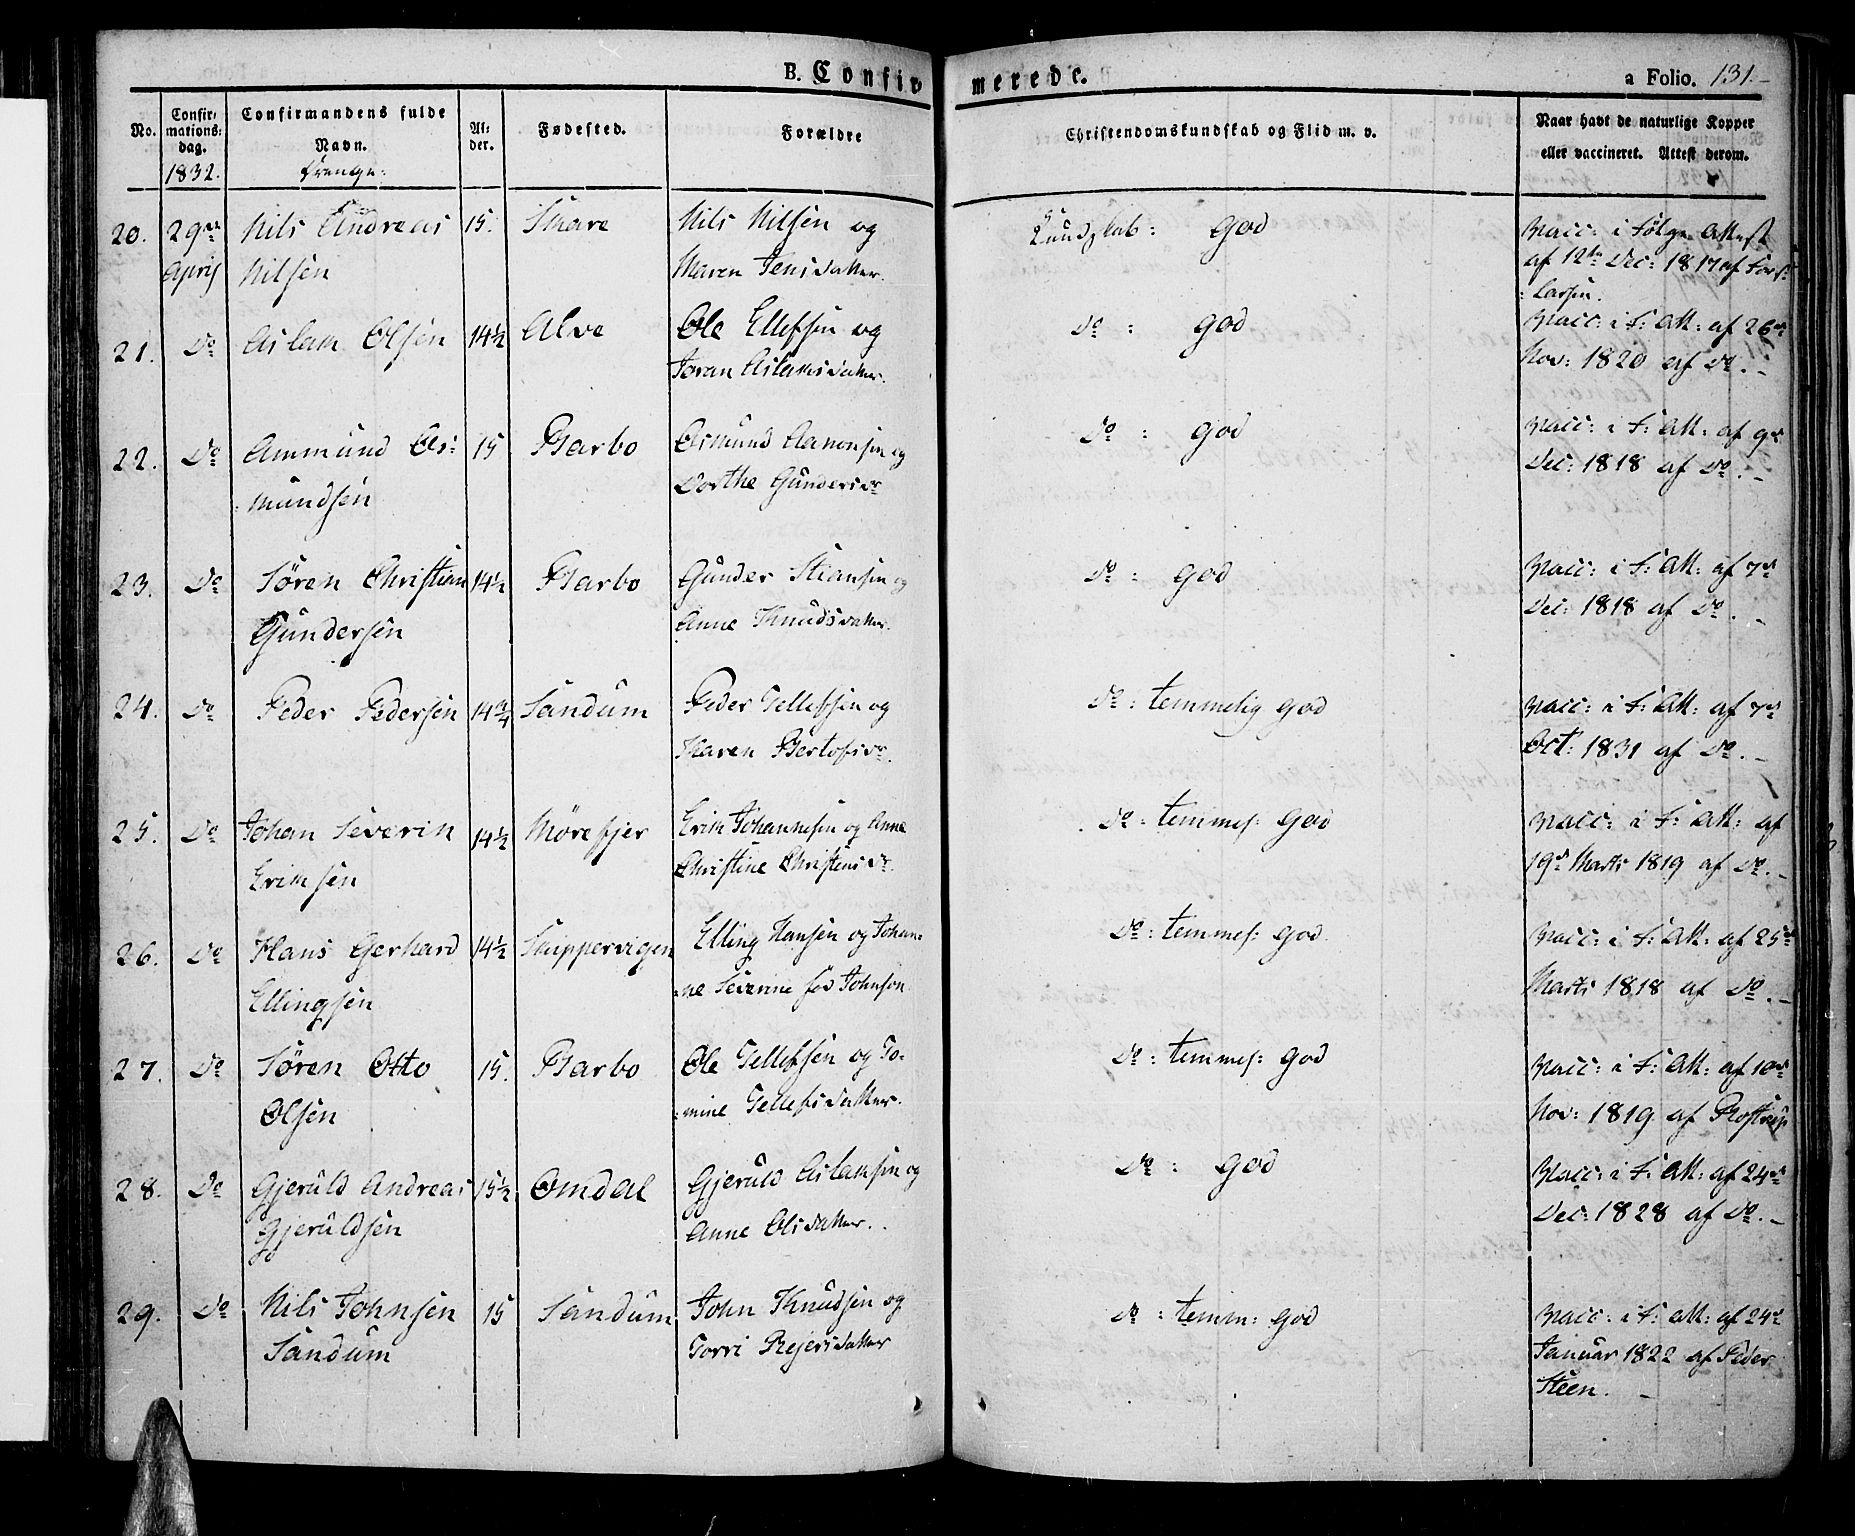 B. Confirmerede.
a Folio. 131.-
No.
Confirmations:
dag.
1832.
Confirmandens fulde
Navn.
Drenge:
Alder.
Fødested.
Forældre
Christendomskundskab og Flid m. v.
Naar havt de naturlige Kopper
eller vaccineret. Attest derom.
20. 29de Nils Andreas 15. Nils Nilsen og Kundskab: god Vacc: i Følge Attest
April Nilsen Maren Jensdatter. af 12te Dec: 1817 af
Larsen.
21. Do Aslak Olsen 14½ Alve Ole Ellefsen og Do: god Vacc: i F: Att: af 26de
Joran Aslaksdatter. Nov: 1820 af Do.-
22. Do Ammund Os: 15 Barbo Osmund Aanonsen og Do: god Vacc: i F: Att: af 9de
mundsen Dorthe Gundersdr Dec: 1818 af Do.-
23. Do Søren Christian 14½ Barbo Gunder Stiansen og Do: god Vacc: i F: Att: af 7de
Gundersen Anne Knudsdatter. Dec: 1818 af Do.-
24. Do Peder Pedersen 14¾ Sandum Peder Tellefsen og Do: temmelig god Vacc: i F: Att: af 7de
Karen Bertofsdr. Oct: 1831 af Do.-
25. Do Johan Severin 14½ Mørefjer Erik Johannesen og Anne Do: temmel: god Vacc: i F: Att: af
Eriksen Christine Christensdr. 19de Marts 1819 af Do.-
26. Do Hans Gerhard 14½ Skippervigen Elling Hansen og Johan= Do: temmel: god Vacc: i F: Att: af 25de
Ellingsen =ne Severine fød Johnson Marts 1818 af Do.-
27. Do Søren Otto 15. Barbo Ole Tellefsen og To= Do: temmel: god Vacc: i F: Att: af 10de
Olsen =mine Tellefsdatter. Nov: 1819 af Rostrup
28. Do Gjeruld Andreas 15½ Omdal Gjeruld Aslaksen og Do: god Vacc: i F: Att: af 24de
Gjeruldsen Anne Olsdatter. Dec: 1828 af Do.-
29. Do Nils Johnsen 15 Sandum John Knudsen og Do: temm: god Vacc: i F: Att: af 24de
Sandum Torri Rejersdatter Januar 1822 af Peder
Steen.-